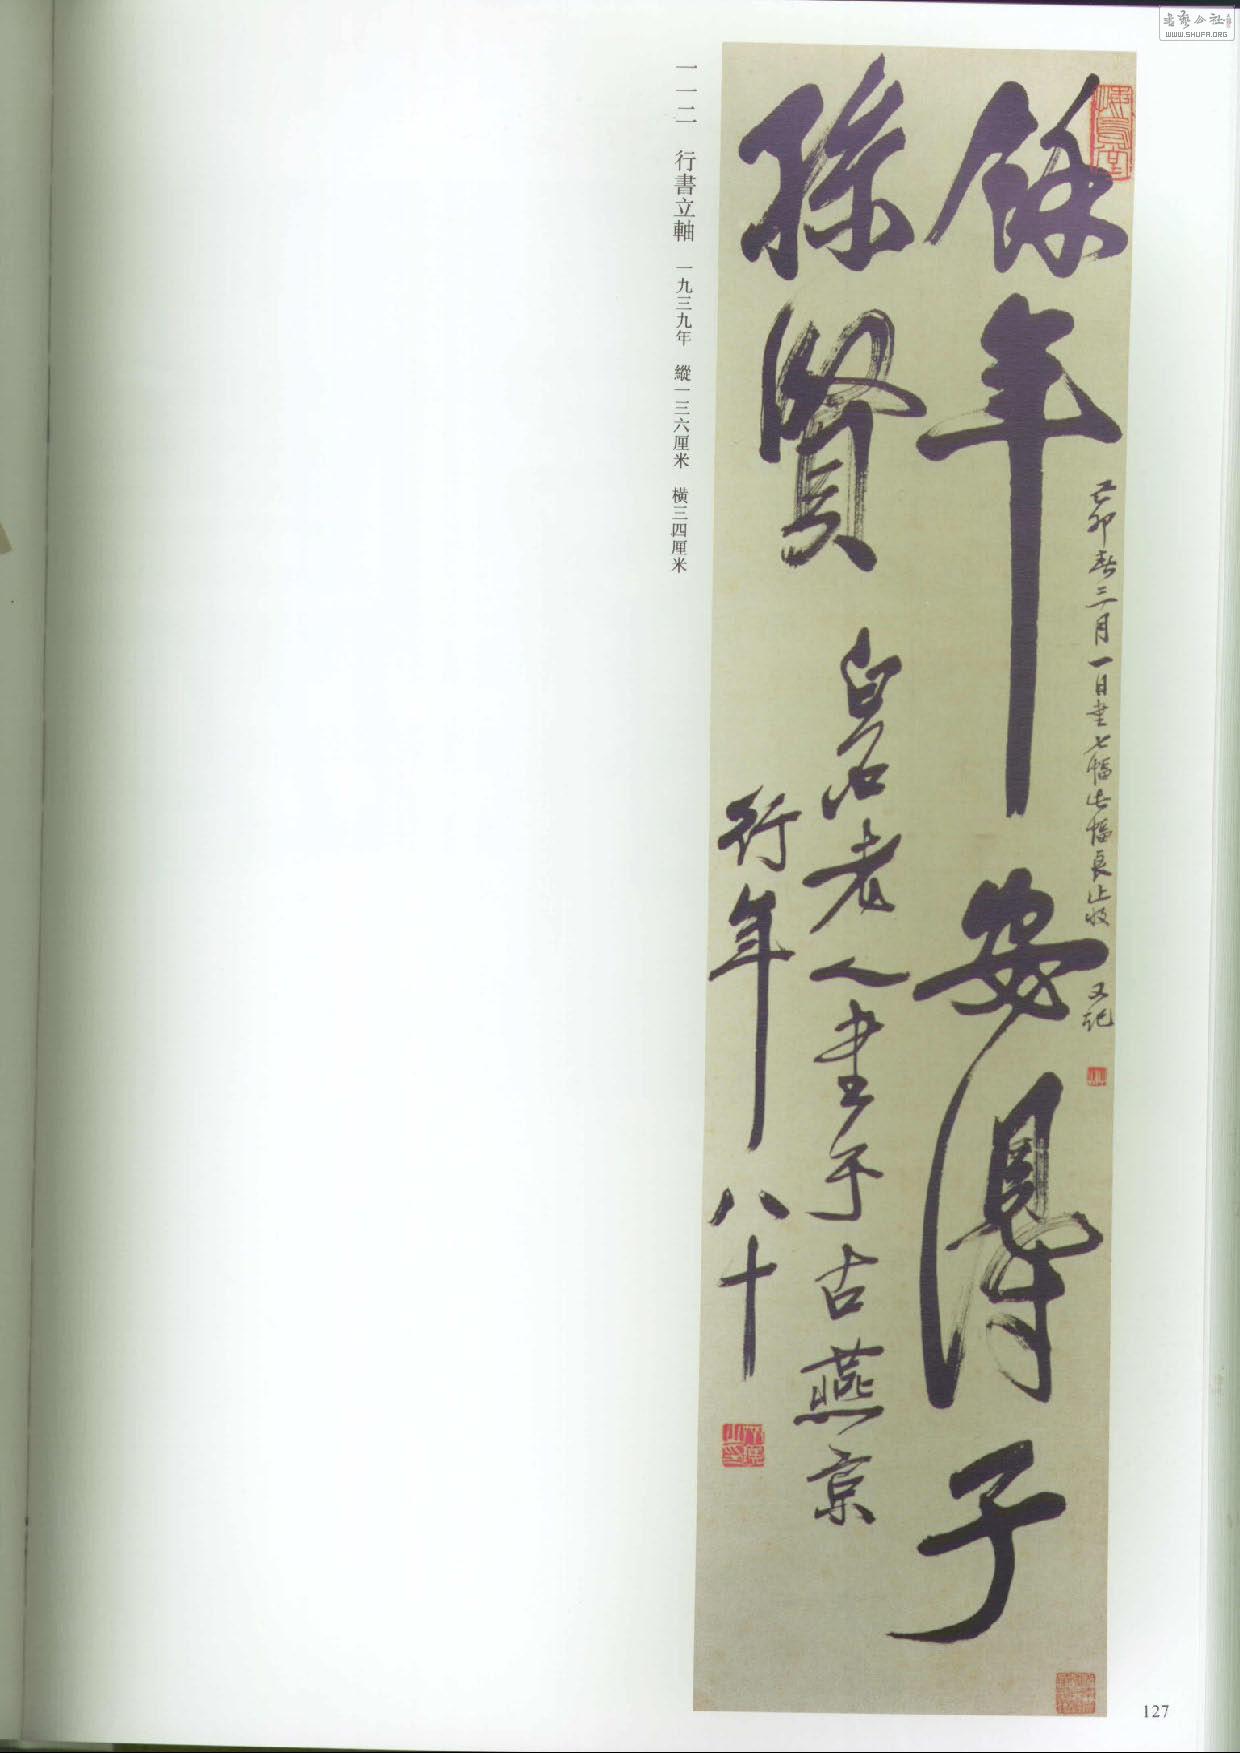 書藝公社
WWW.SHUFA.ORG
餘年安得子
孫賢
己卯春三月一日書七幅此幅良止收 又記
白石老人書于古燕京
行年八十
一一二 行書立軸 一九三九年 縱一三六厘米 橫三四厘米
127